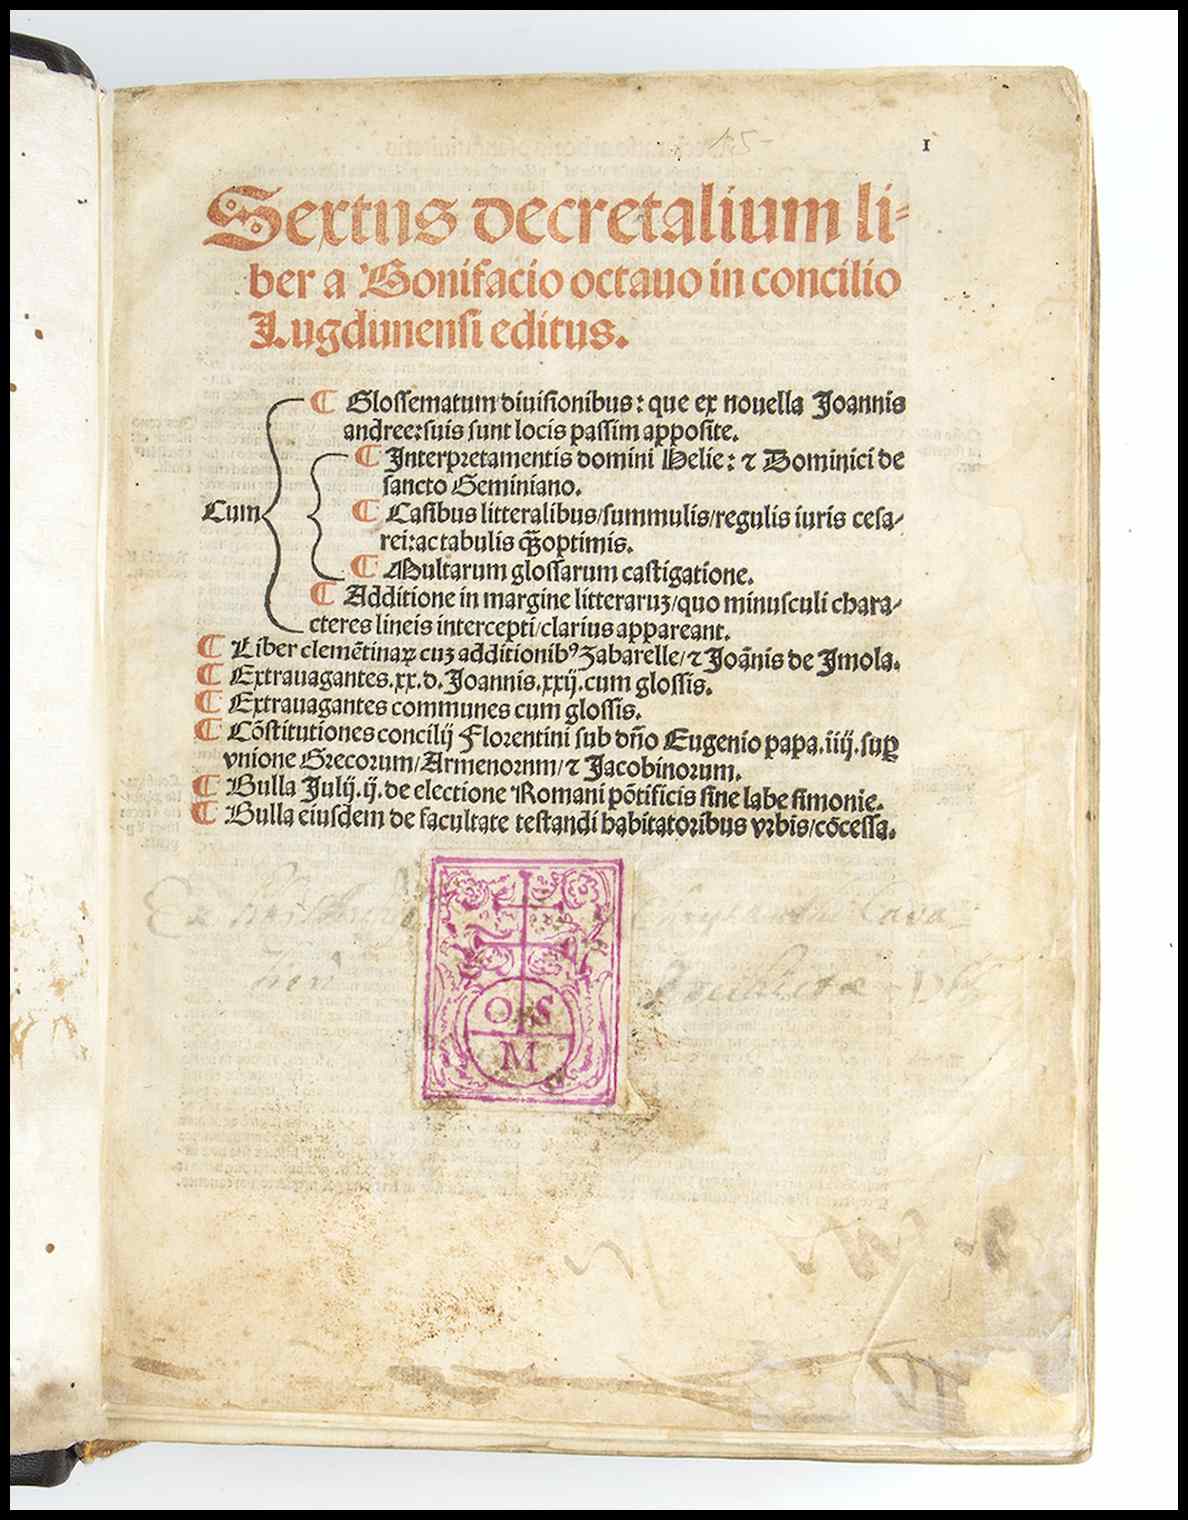 15-
1
Sextus decretalium li-
ber a Bonifacio octauo in concilio
Lugdunensi editus.
¶ Glossematum diuisionibus: que ex nouella Joannis
andree: suis sunt locis passim apposite.
¶ Interpretamentis domini Helie: ⁊ Dominici de
sancto Geminiano.
Cum
¶ Casibus litteralibus/summulis/regulis iuris cesa-
rei: ac tabulis qꝫ̄optimis.
¶ Multarum glossarum castigatione.
¶ Additione in margine litteraruꝫ/quo minusculi chara-
cteres lineis intercepti/clarius appareant.
¶ Liber clemētinaꝝ cuꝫ additionibꝰ Zabarelle/⁊ Joānis de Imola.
¶ Extrauagantes.xx.d.Joannis.xxij.cum glossis.
¶ Extrauagantes communes cum glossis.
¶ Cōstitutiones concilij Florentini sub dño Eugenio papa.iiij.suꝑ
vnione Grecorum/Armenornm/⁊ Jacobinorum.
¶ Bulla Julij.ij.de electione Romani pōtificis sine labe simonie.
¶ Bulla eiusdem de facultate testandi habitatoribus vrbis/cōcessa.
Ex
O S
M